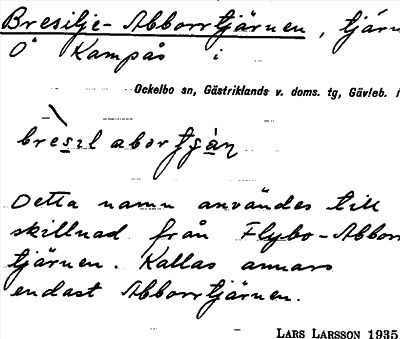 Bresilje-Abborrtjärnen, tjärn
O Kampås i
Ockelbo sn, Gästriklands v. doms. tg, Gävleb. l
bresil abortjän
Detta namn användes till
skillnad från Flybo-Abborr
tjärnen. Kallas annars
endast Abborrtjärnen.
LARS LARSSON 1935